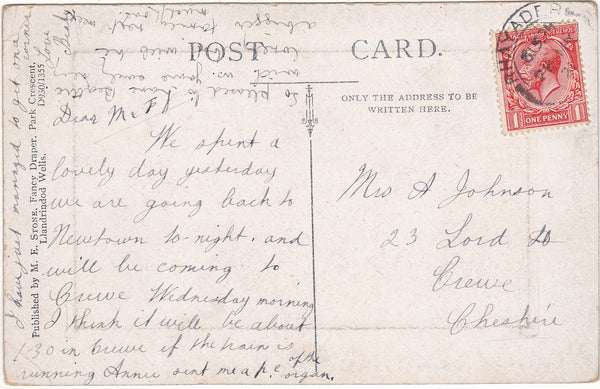 POST CARD.
ONLY THE ADDRESS TO BE
WRITTEN HERE.
RHAYADER
ONE PENNY
1 1
Mrs A Johnson
23 Lord St
Crewe
Cheshire
Dear Mr F
We spent a
lovely day yesterday
we are going back to
Newtown to-night, and
will be coming to
Crewe Wednesday morning
I think it will be about
1-30 in Crewe if the train is
running Annie sent me a p.c. of the
organ.
I have just managed to get me
corner
Love
so pleased to have Beattie
with us. Gone away very
lovely it will be
a bigger
next
Published by M. E. STONE, Fancy Draper, Park Crescent,
Llandrindod Wells. D930/1355